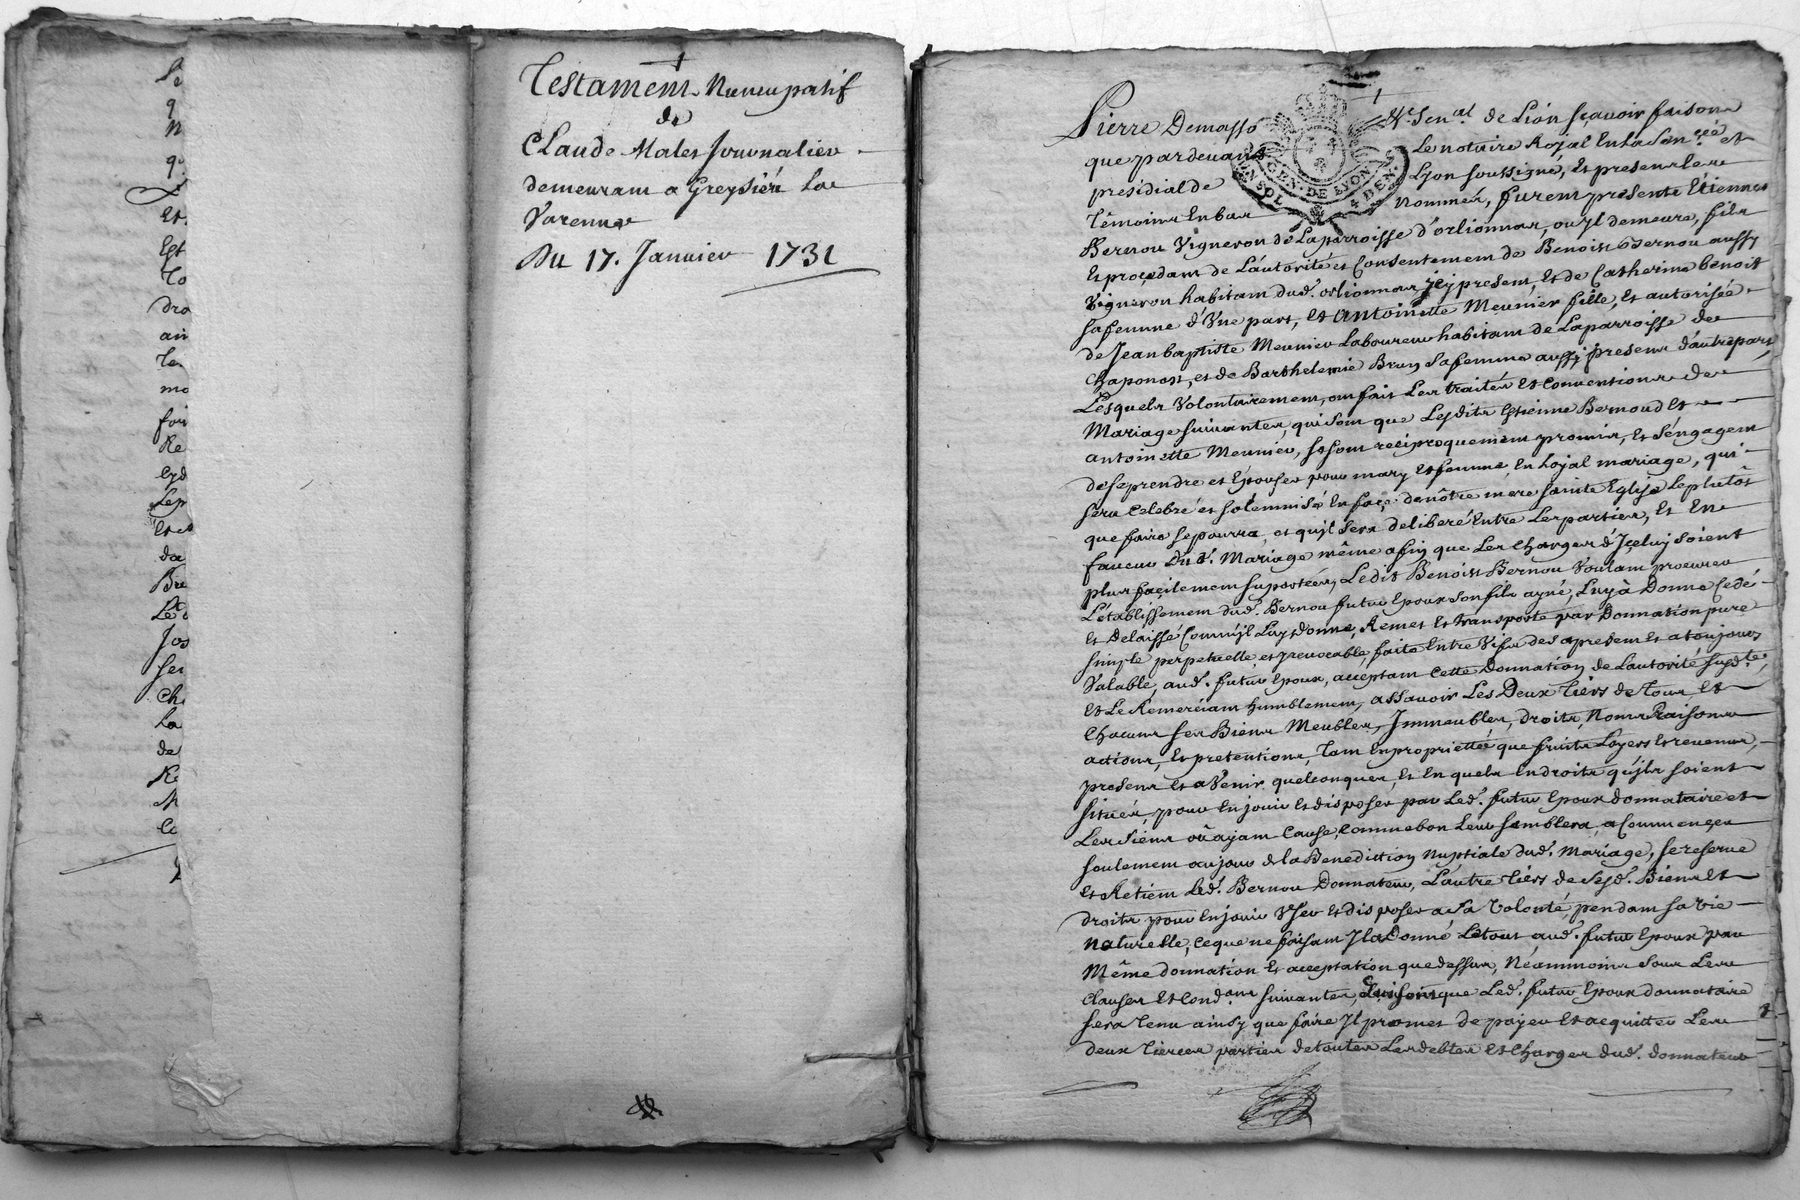 Testament Nuncupatif
de
Claude Males Journalier
demeurant a Greysieu La
Varenne
Du 17. Janvier 1731
Pierre Demasso &c. Sen.al de Lion sçavoir faisons
que pardevant Le notaire Royal En la Sen.cée et
presidial de Lyon soussigné, Et presens les
Témoins En bas nommés, furent presents Etienne
Bernou Vigneron de La parroisse d'orlienas, ou Jl demeure, fils
Et procedant de L'autorité et Consentement de Benoist Bernou aussy
Vigneron habitant dud. orlienas, Jcy present, Et de Catherine benoist
sa femme d'Une part, Et antoinette Meunier fille, Et autorisée
de Jean baptiste Meunier Laboureur habitant de La parroisse de
Chaponost, et de Barthelemie Brun sa femme aussi presens d'autre part,
Lesquels Volontairement, ont fait Les traités Et Conventions de
Mariage suivantes, qui sont que Lesdits Etienne Bernoud Et
antoinette Meunier, se sont reciproquement promis, Et s'engagent
de se prendre et Epouser pour mary Et femme, En Loyal mariage, qui
sera Celebré et solemnisé En face de nôtre mere sainte Eglise Le plutôt
que faire se pourra, et qu'jl sera deliberé Entre Les parties, Et En
faveur Dud. Mariage même afin que Les Charges d'Jceluy soient
plus facilement suportées, Ledit Benoist Bernou Voulant procurer
L'établissement dud. Bernou futur Epoux son fils ayné, Luy à Donné Cedé
Et Delaissé Comme jl Luy donne, Remet Et transporte par Donnation pure
simple perpetuelle et jrrevocable, faite Entre Vifs des apresent Et a toujours
Valable, aud. futur Epoux, acceptant Cette Donnation de L'autorité susd.te
Et Le Remerciant humblement, assavoir Les Deux tiers de tous Et
Chacuns ses Biens Meubles, Jmmeubles, droits, Noms Raisons
actions, Et pretentions, tant En proprietté que fruits Loyers Et revenus,
presens Et a Venir quelconques, Et En quels Endroits qu'jls soient
situés, pour En jouir Et disposer par Led. futur Epoux donnataire et
Les siens où ayant Cause, Comme bon Leur semblera, a Commencer
seulement au jour de la Benediction Nuptiale dud. Mariage, se reserve
Et Retient Led. Bernou Donnateur, L'autre tiers de sesd. Biens Et
droits pour En jouir User Et disposer a sa Volonté, pendant sa vie
naturelle, Ce que ne faisant Jl a Donné Le tout aud. futur Epoux par
Même donnation Et acceptation que dessus, Néammoins sous Les
Clauses Et Cond.ons suivantes, qui sont que Led. futur Epoux donnataire
sera tenu ainsy que faire Jl promet de payer Et acquitter Les
deux tierces parties de toutes Les debtes Et Charges dud. donnateur